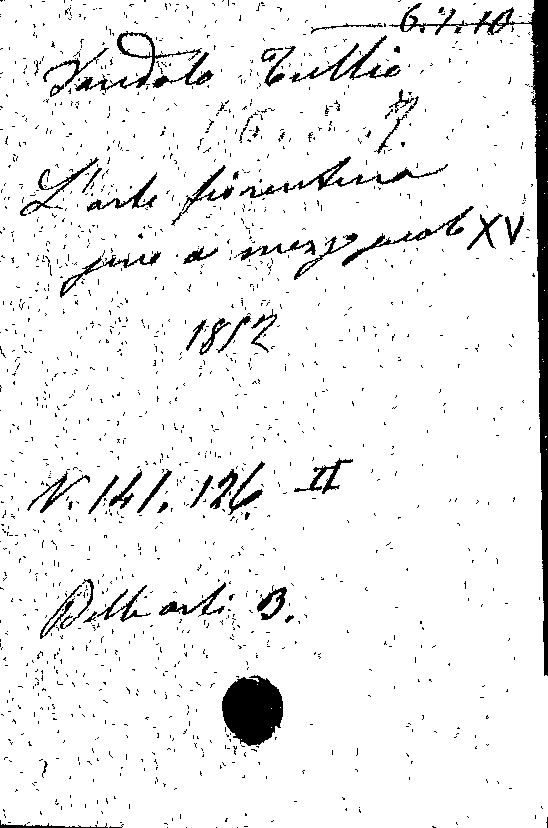 6.7.10
Dandolo Tullio
L'arte fiorentina
fino a mezzo secolo XV
1852
N. 141. 126. II
Belle arti B.